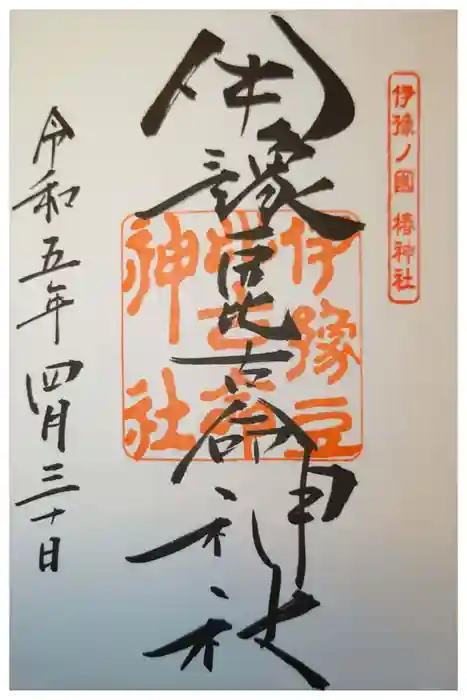 伊豫ノ國 椿神社
伊豫豆比古命神社
伊豫豆
比古命
神社
令和五年四月三十日